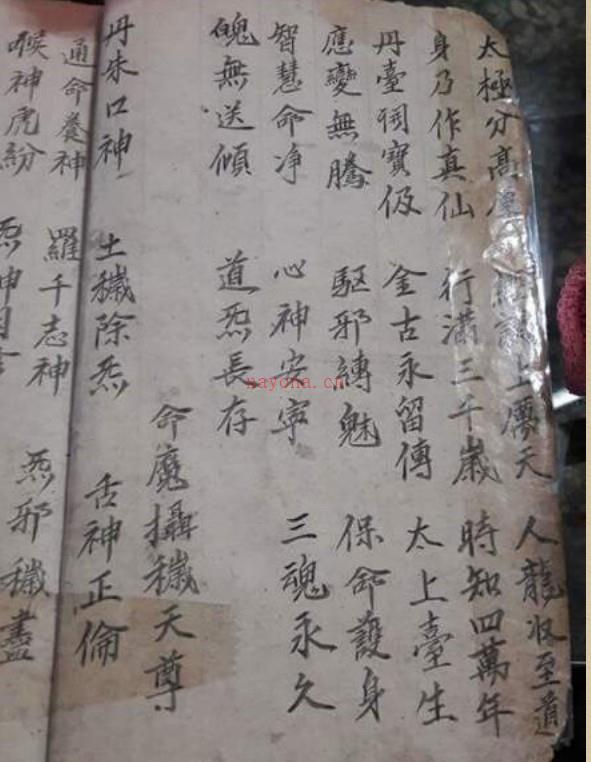 太極分高 上 天 人龍收至道
身乃作真仙 行滿三千歲 時知四萬年
丹臺 寶伋 金古永留傳
太上臺生 應變無騰 驅邪縛魅 保命護身
智慧命净 心神安寧 三魂永久
魄無送傾 道炁長存
命魔攝穢天尊
丹朱口神 土穢除炁 舌神正倫
通命養神 羅千志神
喉神虎紛 炁神 炁邪穢盡
nayona.cn